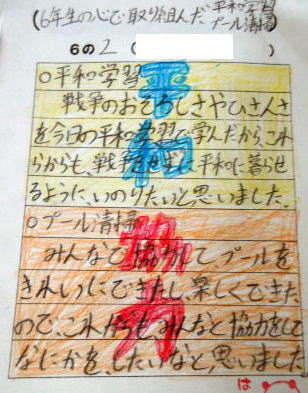 (6年生の心で取り組んだ 平和学習
プール清掃)
6の2 ( )
○平和学習
戦争のおそろしさやひさんさ
を今日の平和学習で学んだから、これ
らからも、戦争をせずに平和に暮らせ
るように、いのりたいと思いました。
○プール清掃
みんなで協力して プールを
きれいにできたし、楽しくできた
ので、これからも、みんなと協力をし
なにかを、したいなと、思いました
平和
協力
は